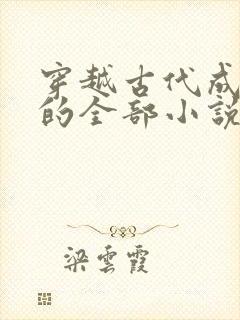 穿越古代成
的全部小説
梁雲霞